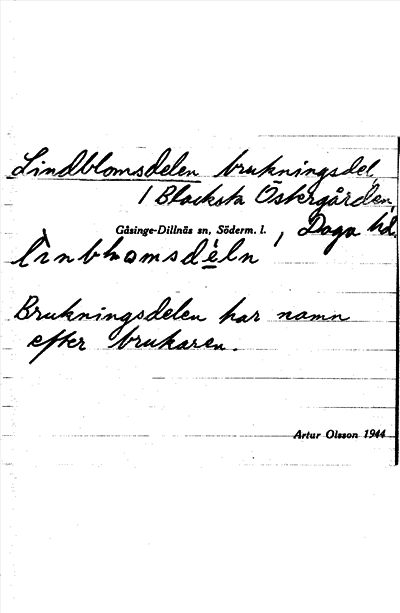 Lindblomsdelen brukningsdel
i Blacksta Östergården
Gåsinge-Dillnäs sn, Söderm. l. , Daga hd.
brukningsdelen har namn
efter brukaren.
Artur Olsson 1944